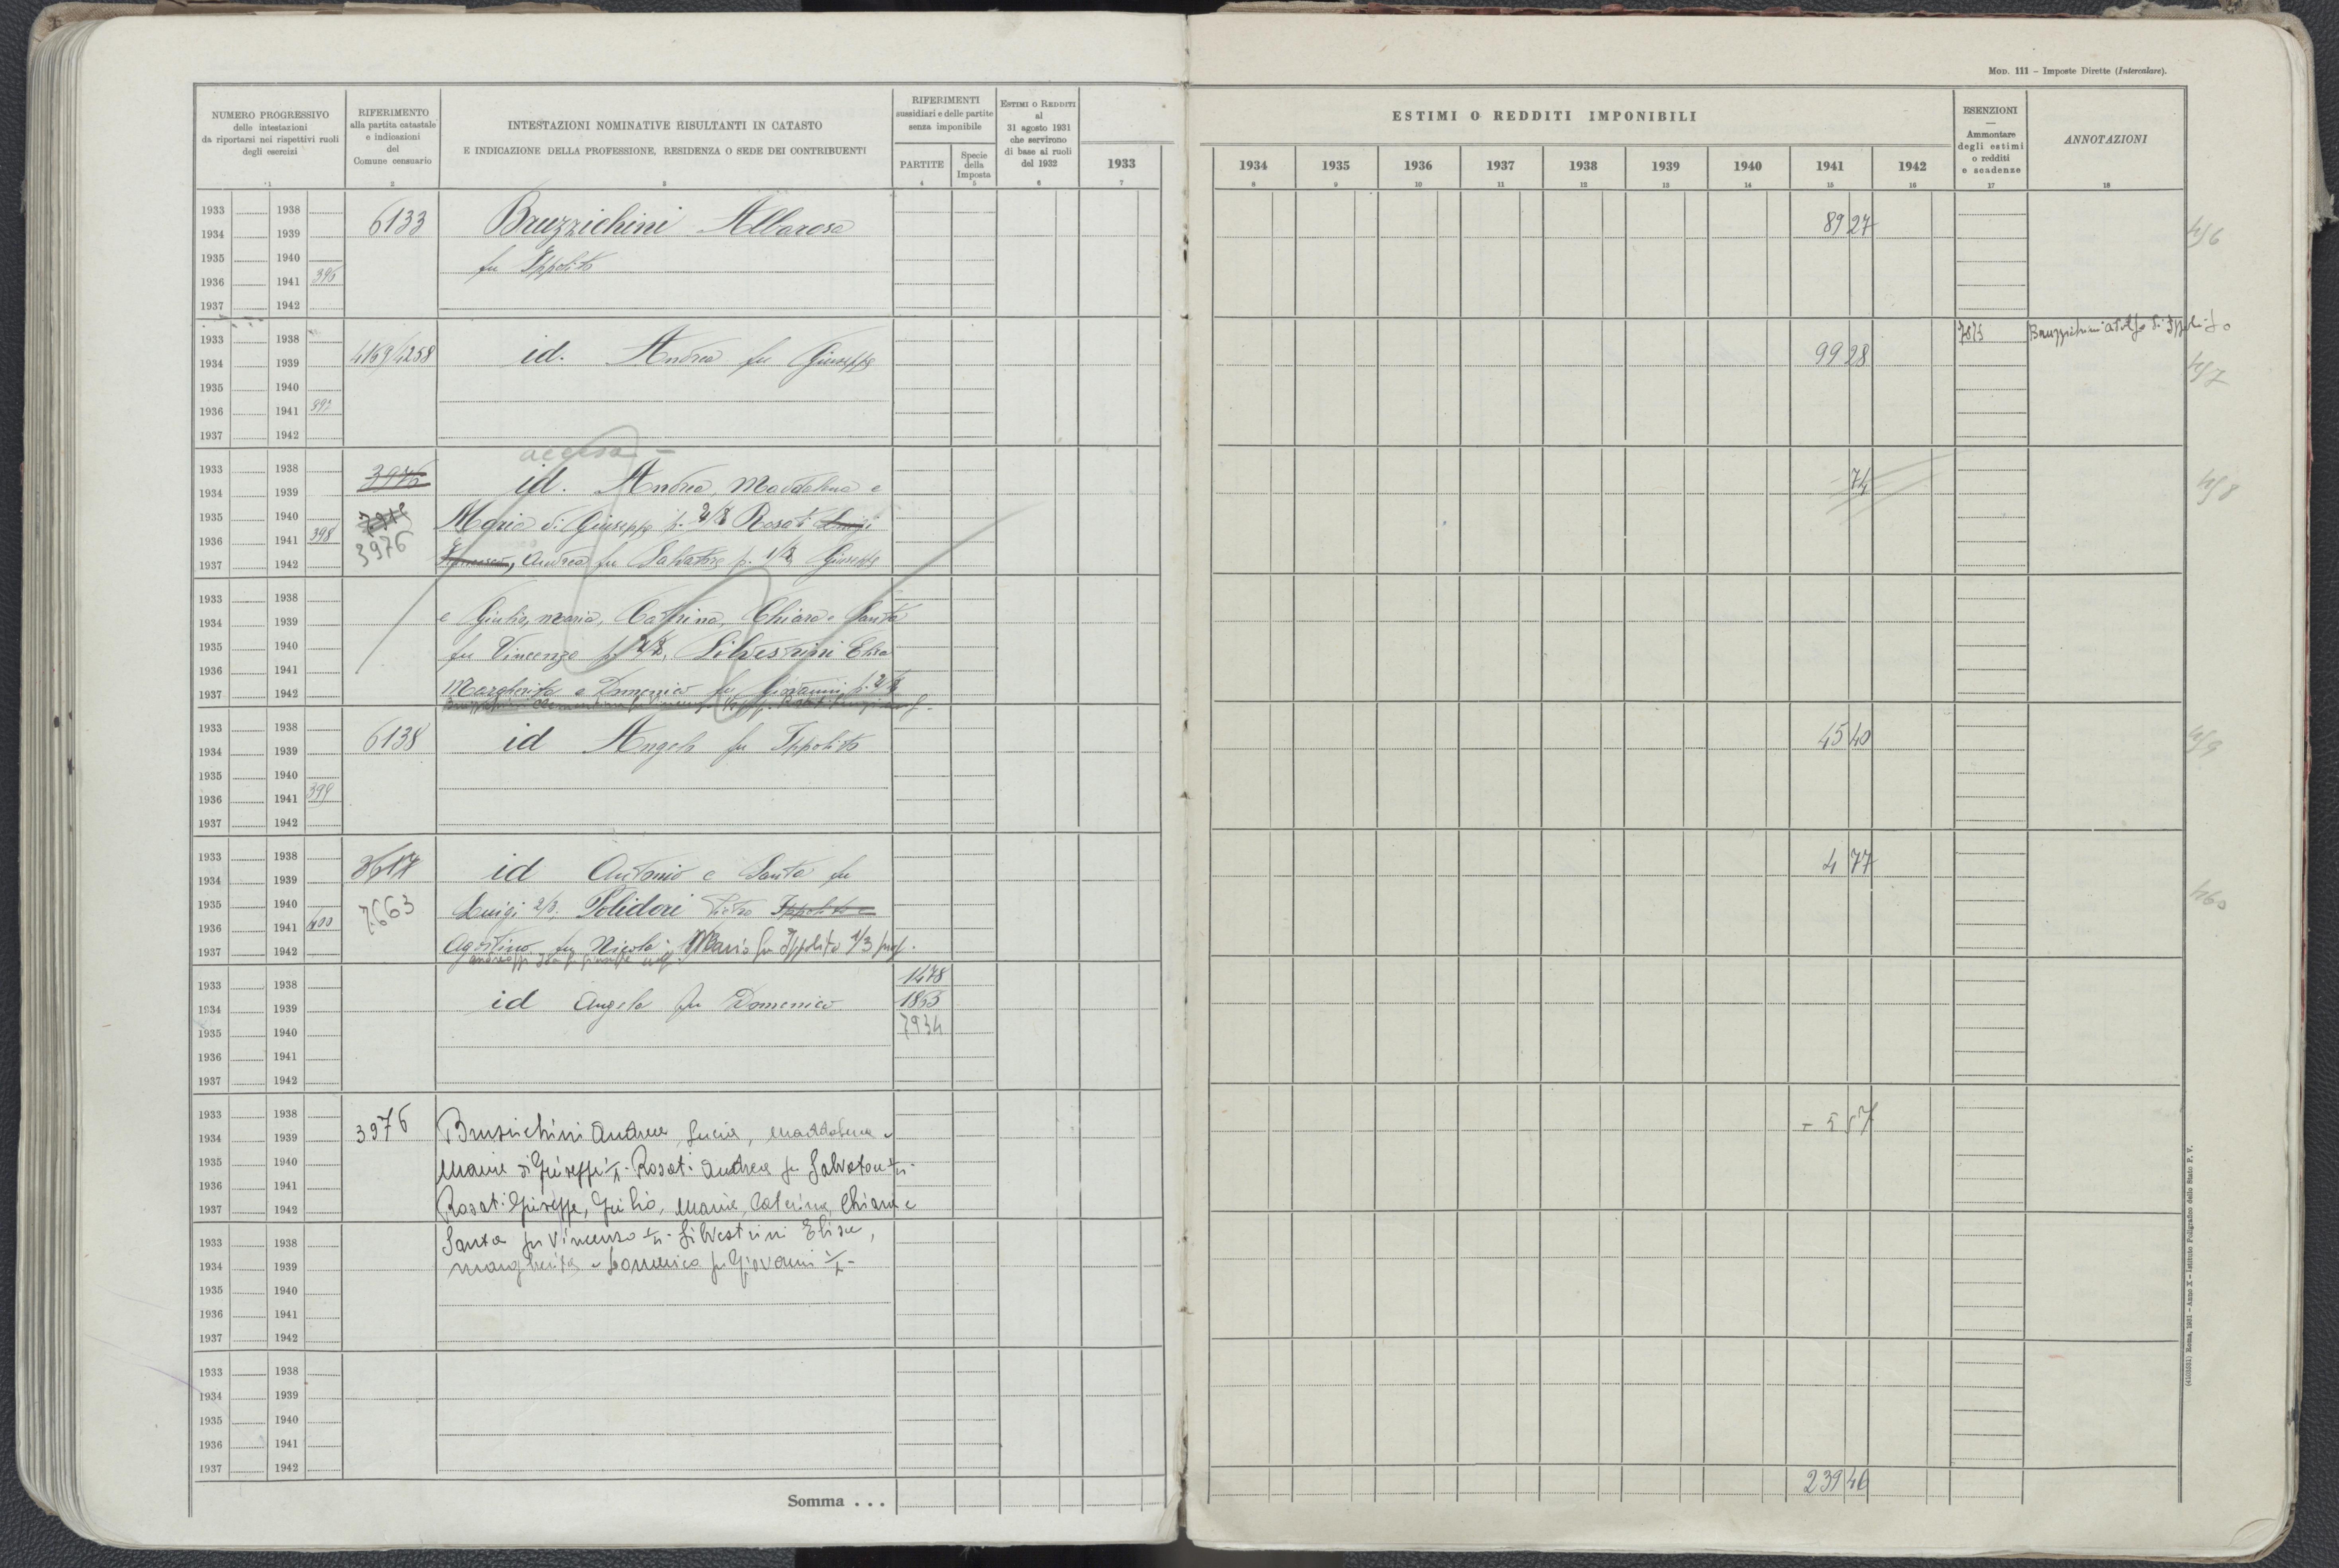 MOD. 111 – Imposte Dirette (Intercalare).
NUMERO PROGRESSIVO
delle intestazioni
da riportarsi nei rispettivi ruoli
degli esercizi
1
RIFERIMENTO
alla partita catastale
e indicazioni
del
Comune censuario
2
INTESTAZIONI NOMINATIVE RISULTANTI IN CATASTO
E INDICAZIONE DELLA PROFESSIONE, RESIDENZA O SEDE DEI CONTRIBUENTI
3
RIFERIMENTI
sussidiari e delle partite
senza imponibile
PARTITE
4
Specie
della
Imposta
5
ESTIMI O REDDITI
al
31 agosto 1931
che servirono
di base ai ruoli
del 1932
6
1933
7
ESTIMI O REDDITI IMPONIBILI
1934 1935 1936 1937 1938 1939 1940 1941 1942
8 9 10 11 12 13 14 15 16
ESENZIONI
—
Ammontare
degli estimi
o redditi
e scadenze
17
ANNOTAZIONI
18
1933 1938
1934 1939
1935 1940
1936 1941 396
1937 1942
6133
Bruzzichini Albarosa
fu Ippolito
89 27
456
1933 1938
1934 1939
1935 1940
1936 1941 397
1937 1942
4169/4258
id. Andrea fu Giuseppe
99 28
Bruzzichini Adolfo di Ippolito
457
1933 1938
1934 1939
1935 1940
1936 1941 398
1937 1942
3976
3976
id. Andrea, Maddalena e
Maria di Giuseppe p. Rosati Luigi
Andrea fu Salvatore p. Giuseppe
74
458
1933 1938
1934 1939
1935 1940
1936 1941
1937 1942
e Giulio, Maria, Catterina, Chiara e Santa
fu Vincenzo p. Silvestrini Elisa
Margherita e Domenico fu Giovanni p.
1933 1938
1934 1939
1935 1940
1936 1941 399
1937 1942
6138
id Angelo fu Ippolito
45 40
459
1933 1938
1934 1939
1935 1940
1936 1941 400
1937 1942
7663
id Antonio e Santa fu
Luigi 2/3, Polidori Pietro Ippolito e
Agostino fu Nicola - Mario fu Ippolito 1/3 prop.
4 77
460
1933 1938
1934 1939
1935 1940
1936 1941
1937 1942
id Angelo fu Domenico
1478
1863
7934
1933 1938
1934 1939
1935 1940
1936 1941
1937 1942
3976
Brusichini Andrea, Lucia, Maddalena e
Maria di Giuseppe Rosati Andrea fu Salvatore
Rosati Giuseppe, Giulio, Maria, Caterina, Chiara e
- 5 57
1933 1938
1934 1939
1935 1940
1936 1941
1937 1942
Santa fu Vincenzo Silvestrini Elisa,
Margherita e Domenico fu Giovanni
1933 1938
1934 1939
1935 1940
1936 1941
1937 1942
Somma . . .
239 46
(4103031) Roma, 1931 – Anno X – Istituto Poligrafico dello Stato P. V.